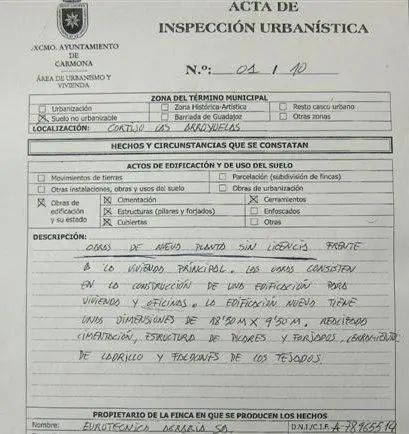 ACTA DE
INSPECCIÓN URBANÍSTICA
EXCMO. AYUNTAMIENTO
DE
CARMONA
ÁREA DE URBANISMO Y
VIVIENDA
N.º: 01 / 10
ZONA DEL TÉRMINO MUNICIPAL
Urbanización Zona Histórica-Artística Resto casco urbano
Suelo no urbanizable Barriada de Guadajoz Otras zonas
LOCALIZACIÓN: CORTIJO LAS ARROYUELAS
HECHOS Y CIRCUNSTANCIAS QUE SE CONSTATAN
ACTOS DE EDIFICACIÓN Y DE USO DEL SUELO
Movimientos de tierras Parcelación (subdivisión de fincas)
Otras instalaciones, obras y usos del suelo Obras de urbanización
Obras de edificación y su estado Cimentación Cerramientos
Estructuras (pilares y forjados) Enfoscados
Cubiertas Otras
DESCRIPCIÓN:
OBRAS DE NUEVA PLANTA SIN LICENCIA FRENTE
A LA VIVIENDA PRINCIPAL. LAS OBRAS CONSISTEN
EN LA CONSTRUCCIÓN DE UNA EDIFICACIÓN PARA
VIVIENDA Y OFICINAS. LA EDIFICACIÓN NUEVA TIENE
UNAS DIMENSIONES DE 18'50 M X 9'50 M. REALIZADO
CIMENTACIÓN, ESTRUCTURA DE PILARES Y FORJADOS, CERRAMIENTO
DE LADRILLO Y FALDONES DE LOS TEJADOS.
PROPIETARIO DE LA FINCA EN QUE SE PRODUCEN LOS HECHOS
Nombre: EUROTECNICA AGRARIA SA. D.N.I/C.I.F. A-78965514